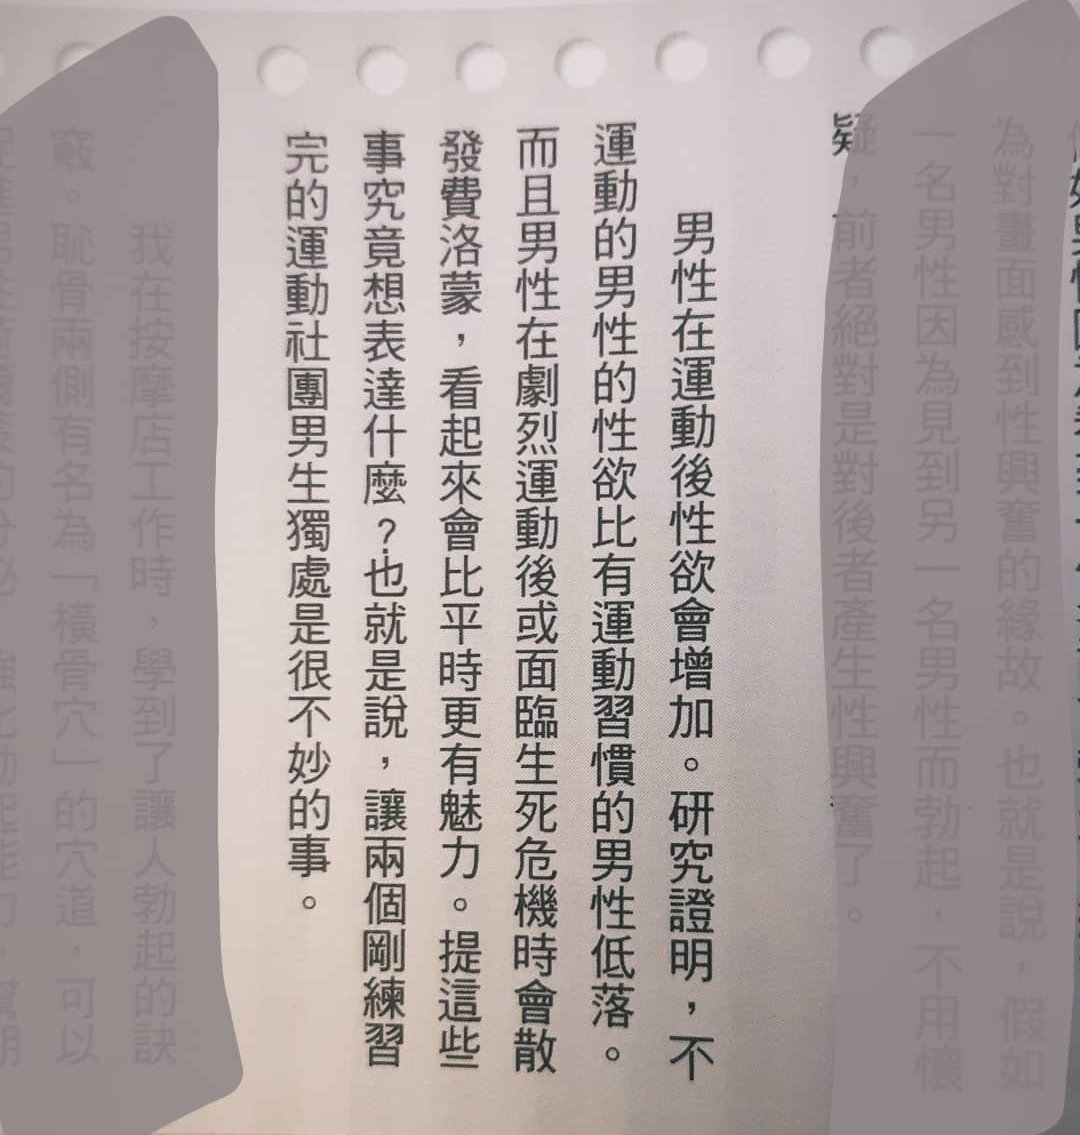 為對畫面感到性興奮的緣故。也就是說，假如
一名男性因為見到另一名男性而勃起，不用懷
疑，前者絕對是對後者產生性興奮了。
男性在運動後性欲會增加。研究證明，不
運動的男性的性欲比有運動習慣的男性低落。
而且男性在劇烈運動後或面臨生死危機時會散
發費洛蒙，看起來會比平時更有魅力。提這些
事究竟想表達什麼？也就是說，讓兩個剛練習
完的運動社團男生獨處是很不妙的事。
我在按摩店工作時，學到了讓人勃起的訣
竅。恥骨兩側有名為「橫骨穴」的穴道，可以